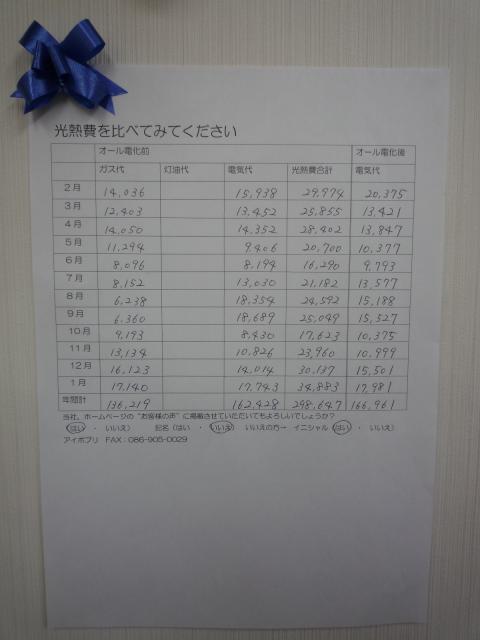 光熱費を比べてみてください
オール電化前 オール電化後
ガス代 灯油代 電気代 光熱費合計 電気代
2月 14,036 15,938 29,974 20,375
3月 12,403 13,452 25,855 13,421
4月 14,050 14,352 28,402 13,847
5月 11,294 9,406 20,700 10,377
6月 8,096 8,194 16,290 9,793
7月 8,152 13,030 21,182 13,577
8月 6,238 18,354 24,592 15,188
9月 6,360 18,689 25,049 15,527
10月 9,193 8,430 17,623 10,375
11月 13,134 10,826 23,960 10,999
12月 16,123 14,014 30,137 15,501
1月 17,140 17,743 34,883 17,981
年間計 136,219 162,428 298,647 166,961
当社、ホームページの"お客様の声"に掲載させていただいてもよろしいでしょうか?
(はい ・ いいえ) 記名(はい ・ いいえ) いいえの方→ イニシャル(はい ・ いいえ)
アイポプリ FAX:086-905-0029